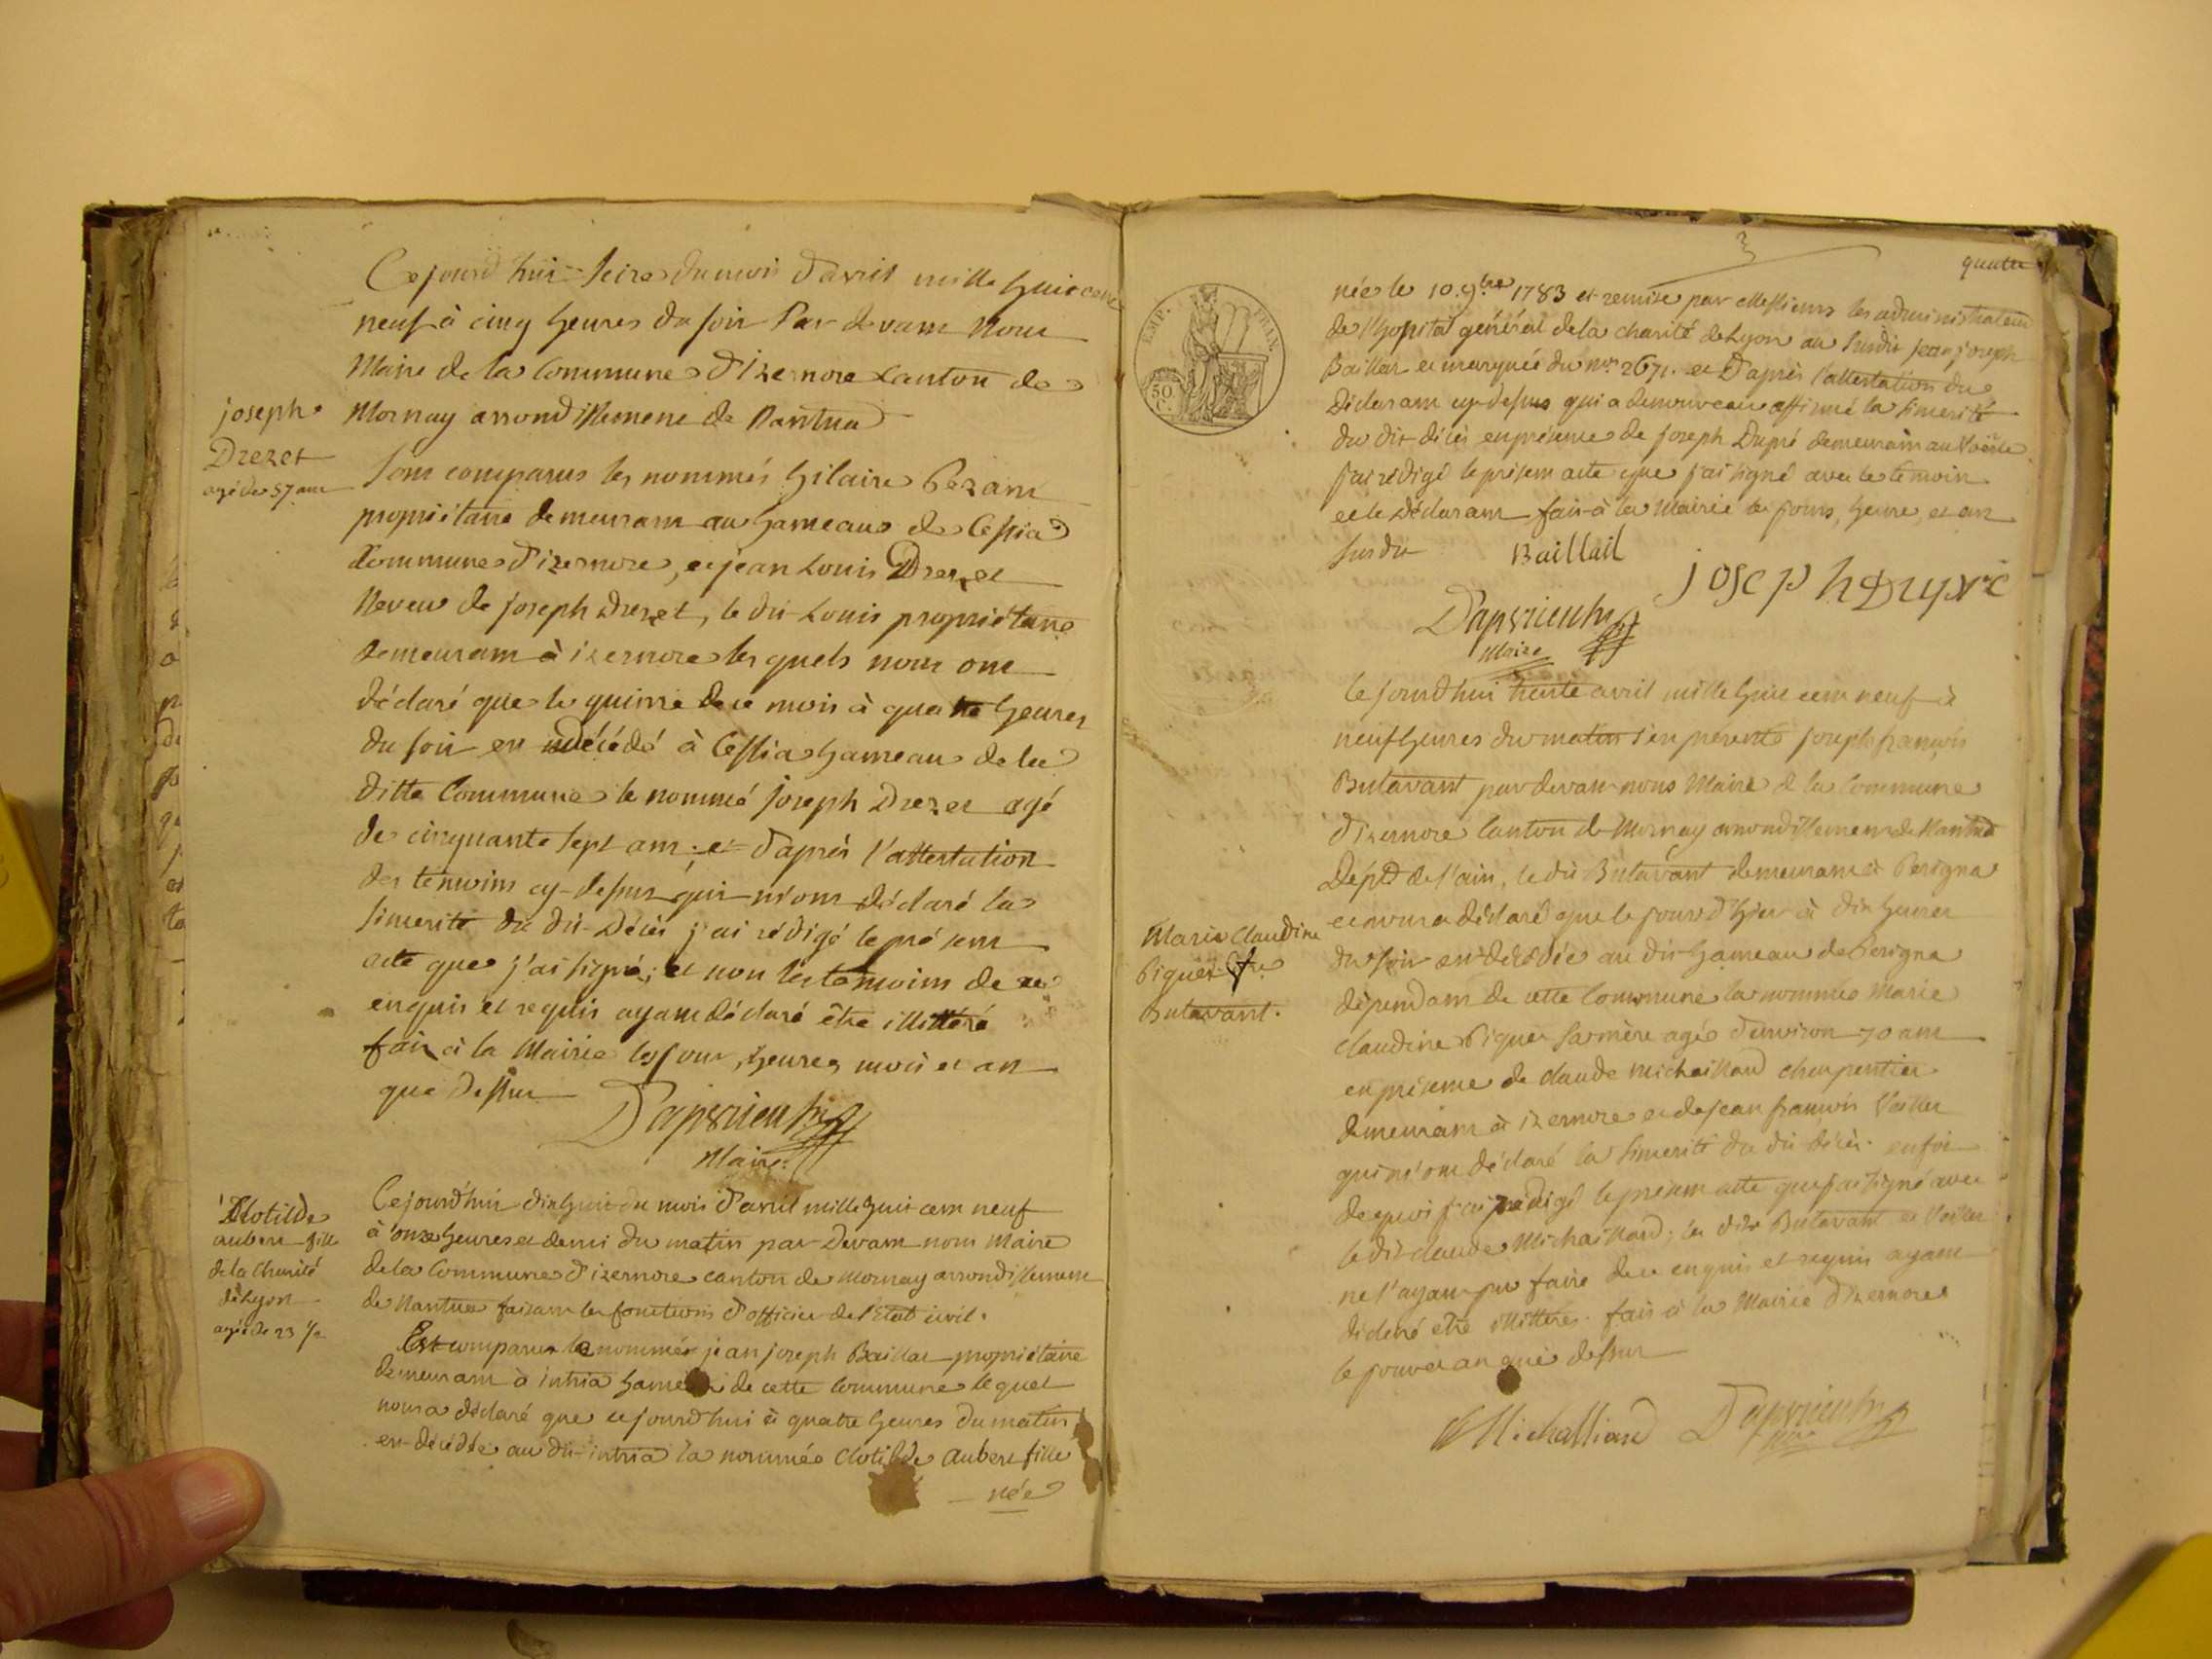 Ce jourd'hui seize du mois d'avril mille huit cent
neuf à cinq heures du soir Par devant Nous
Maire de la Commune d'izernore Canton de
Mornay arrondissement de Nantua
joseph
Drezet
agé de 57 ans
sont comparus les nommés hilaire
propriétaire demeurant au hameaux de Cessia
Commune d'izernore, et jean Louis Drezet
Neveu de joseph Drezet, le dit Louis propriétaire
demeurant à izernore les quels nous ont
déclaré que le quinze de ce mois à quatre heures
du soir est décédé à Cessia hameau de la
ditte Commune le nommé joseph Drezet agé
de cinquante sept ans; et d'après l'attestation
des temoins cy-dessus qui m'ont déclaré la
sincerité du dit Décès j'ai rédigé le présent
acte que j'ai signé; et non les temoins de ce
enquis et requis ayant déclaré être illittéré
fait à la Mairie les jour, heures, mois et an
que dessus
Maire
Clotilde
aubert fille
de la Charité
de Lyon
agée de 23 1/2
Cejourd'hui dix huit du mois d'avril mille huit cent neuf
à onze heures et demi du matin par Devant nous Maire
de la Commune d'izernore canton de Mornay arrondissement
de Nantua faisant les fonctions d'officier de l'état civil.
Est comparus le nommé jean joseph Baillat propriétaire
demeurant à intria hameau de cette Commune lequel
nous a déclaré que cejourd'hui à quatre heures du matin
est décédée au dit intria la nommée Clotilde aubert fille
née
3
quatre
EMP. FRAN.
50
C.
née le 10. 9.bre 1783 et remise par Messieurs les administrateurs
de l'hopital général de la charité de Lyon au susdit jean joseph
Baillat et marquée du no. 2671. et D'après l'attestation du
Déclarant cy-dessus qui a denouveau affirmé la sincerité
du dit décès en présence de joseph Dupré demeurant au
j'ai rédigé le présent acte que j'ai signé avec le temoin
et le Déclarant fait à la Mairie les jours, heure, et an
susdit
Baillail
joseph Dupré
Maire
Ce jourd'hui trente avril mille huit cent neuf à
neuf heures du matin s'est présenté joseph françois
Butavant par devant nous Maire de la Commune
d'izernore Canton de Mornay arrondissement de Nantua
Dépt de l'ain, le dit Butavant demeurant à Perigna
et nous a déclaré que le jourd'hier à dix heures
Marie Claudine
Piquet fe
Butavant.
du soir est décédée au dit hameau de Perigna
dépendant de cette Commune la nommée Marie
claudine Piquet sa mère agée d'environ 70 ans
en présence de claude michaillard charpentier
demeurant à izernore et de jean françois
qui m'ont déclaré la sincerité du dit décès. en foi
de quoi j'ai rédigé le présent acte que j'ai signé avec
le dit claude Michaillard; les dits Butavant et
ne l'ayant pu faire de ce enquis et requis ayant
déclaré être illittéres. fait à la Mairie d'izernore
le jour et an que dessus
Michalliard